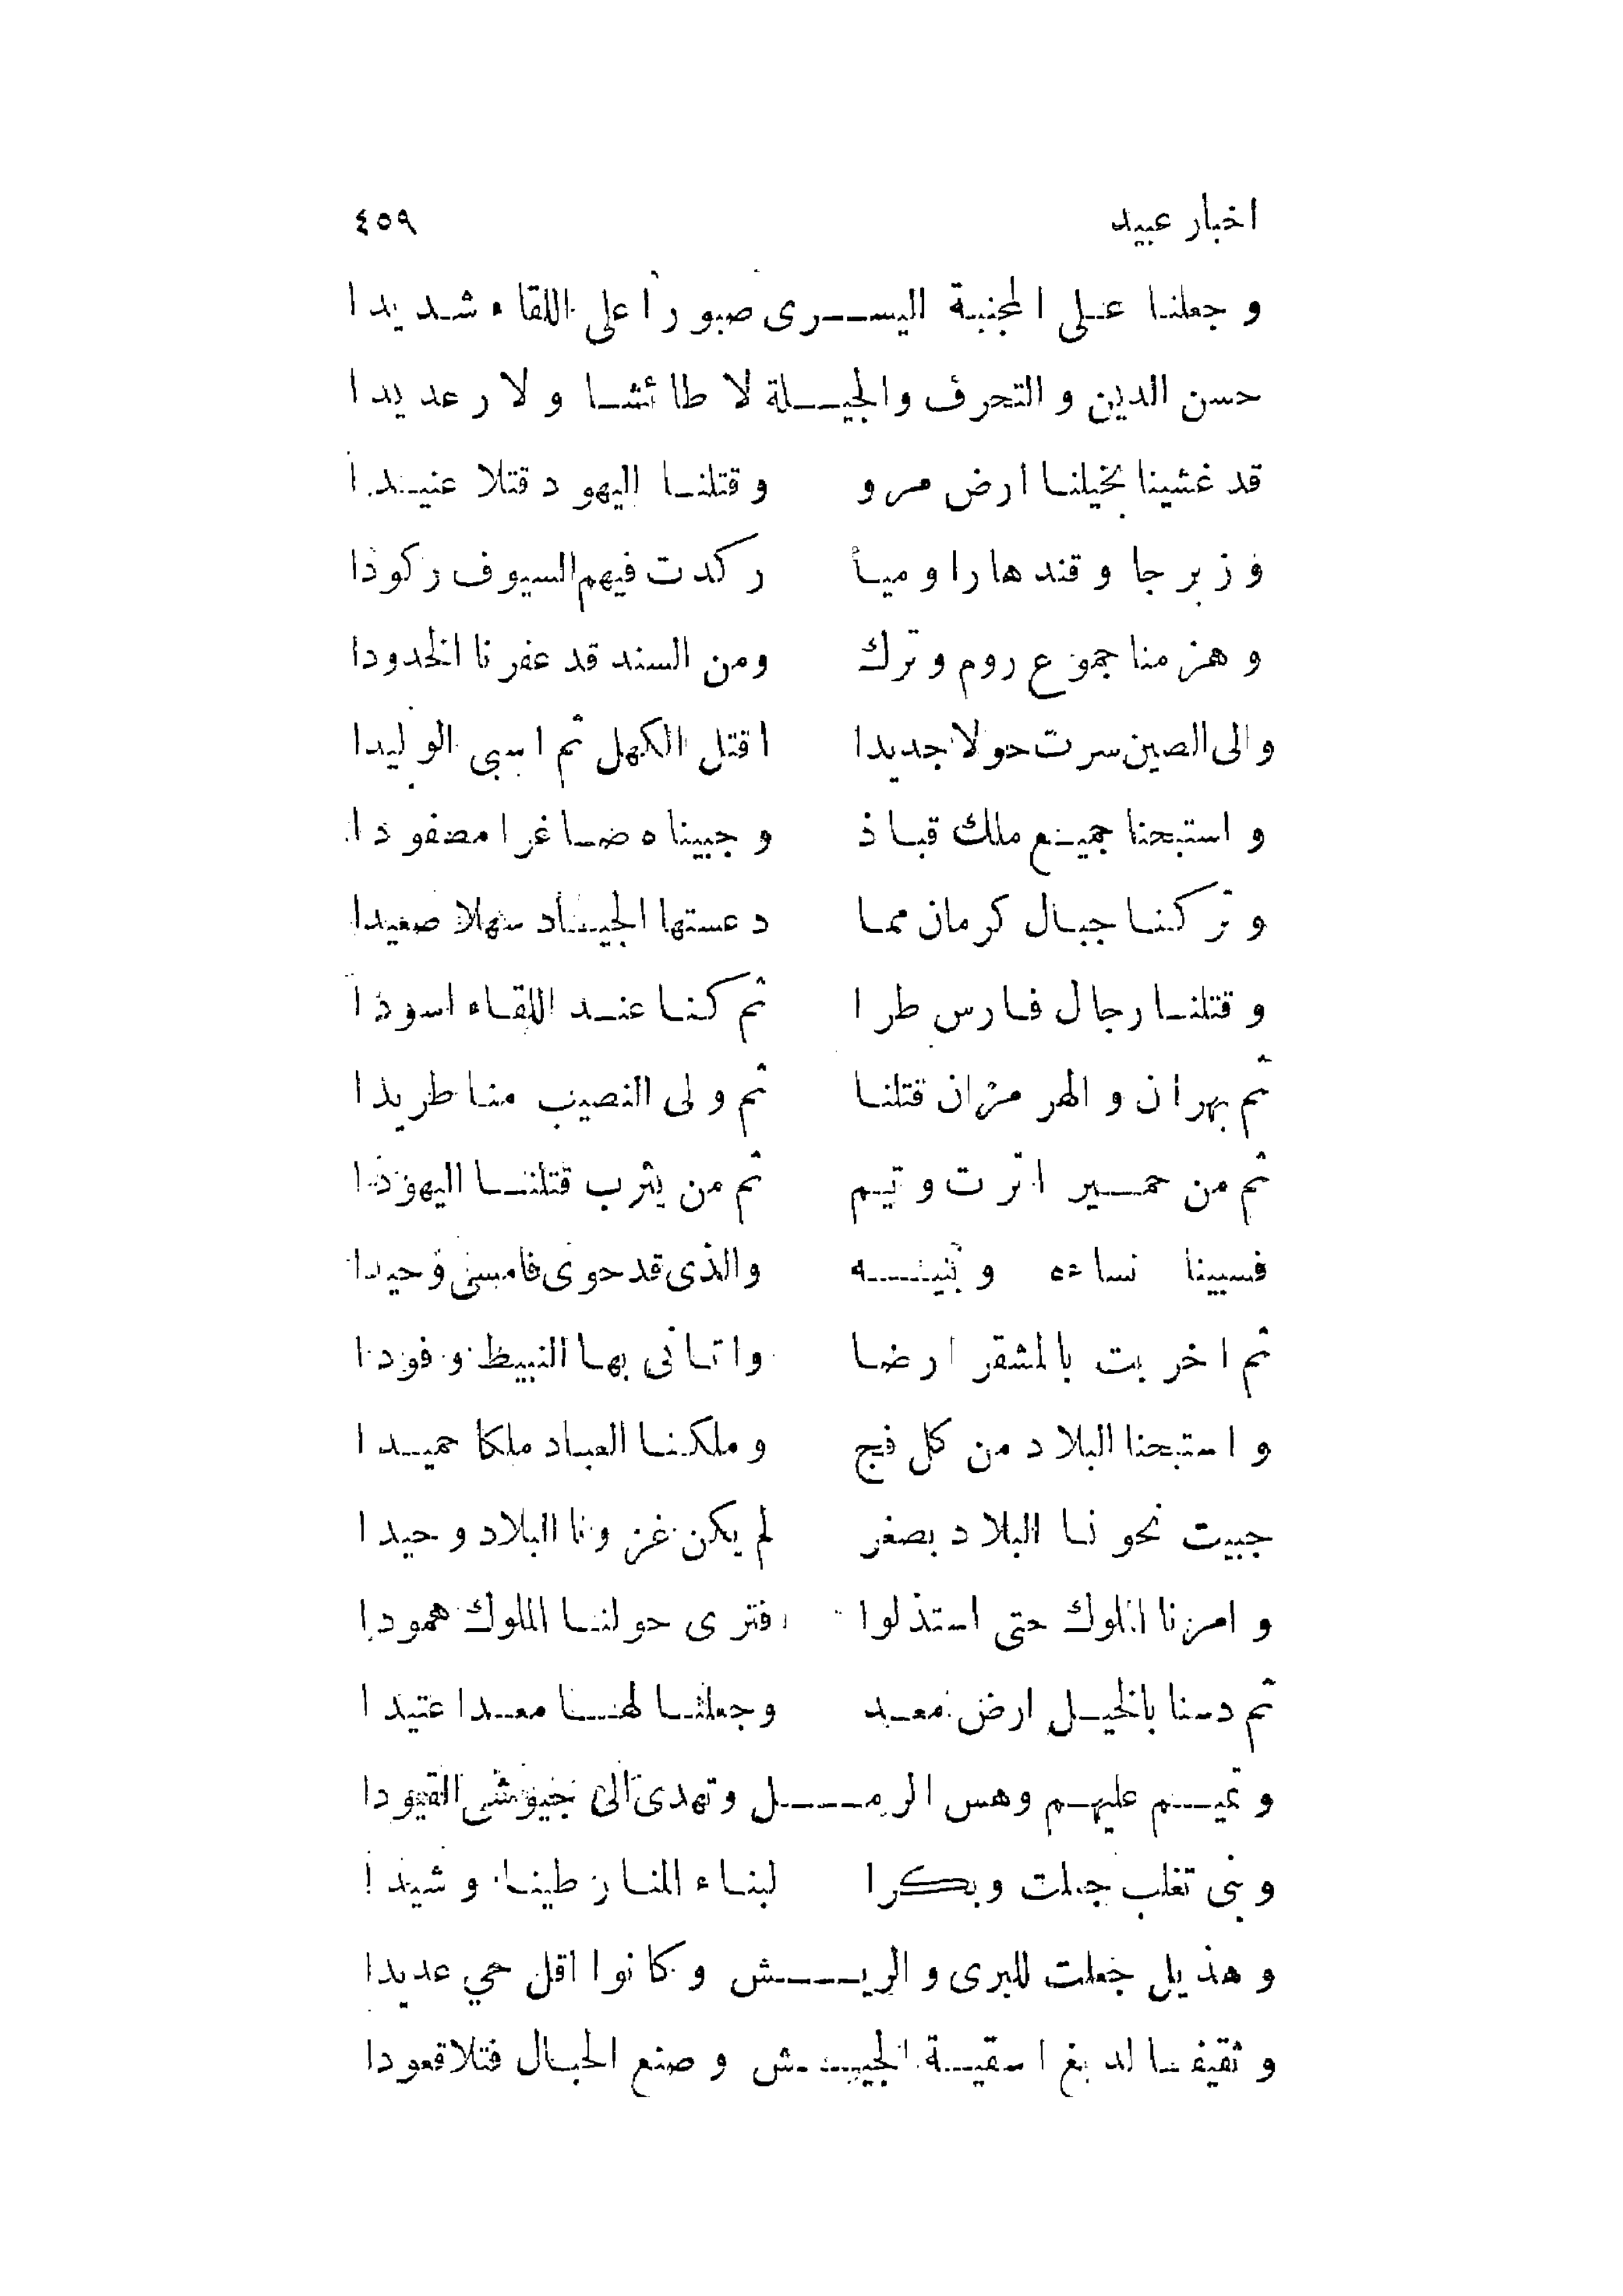 اخبار عبيد ٤٥٩
وجعلنا على المجنبة اليسرى صبوراً على اللقاء شديدا
حسن الدين والتحرف والجيلة لا طائشا ولا رعديدا
قد غشينا بخيلنا ارض مرو وقتلنا اليهود قتلا عنيدا
وزبرجا وقندهارا ومياً ركدت فيهم السيوف ركودا
وهزمنا جموع روم وترك ومن السند قد عفرنا الخدودا
والى الصين سرت حولا جديدا اقتل الكهل ثم اسبى الوليدا
واستبحنا جميع ملك قباذ وجبيناه صاغرا مصفودا
وتركنا جبال كرمان مما دعستها الجياد سهلا صعيدا
وقتلنا رجال فارس طرا ثم كنا عند اللقاء اسودا
ثم بهران والهرمزان قتلنا ثم ولى النصيب منا طريدا
ثم من حمير اثرت وتيم ثم من يثرب قتلنا اليهودا
فسبينا نساءه وبنيه والذى قد حوى فامسى وحيدا
ثم اخربت بالمشقر ارضا واتانى بها النبيط وفودا
واستبحنا البلاد من كل فج وملكنا العباد ملكا حميدا
جبيت نحونا البلاد بصغر لم يكن غزونا البلاد وحيدا
وامرنا الملوك حتى استذلوا فترى حولنا الملوك همودا
ثم دسنا بالخيل ارض معد وجعلنا لهنا معدا عتيدا
وتميم عليهم وهس الرمل وتهدى الى جيوشى القيودا
وبنى تغلب جعلت وبكرا لبناء المنار طينا وشيدا
وهذيل جعلت للبرى والريش وكانوا اقل حي عديدا
وثقيفا لدبغ اسقية الجيش وصنع الحبال فتلا قعودا